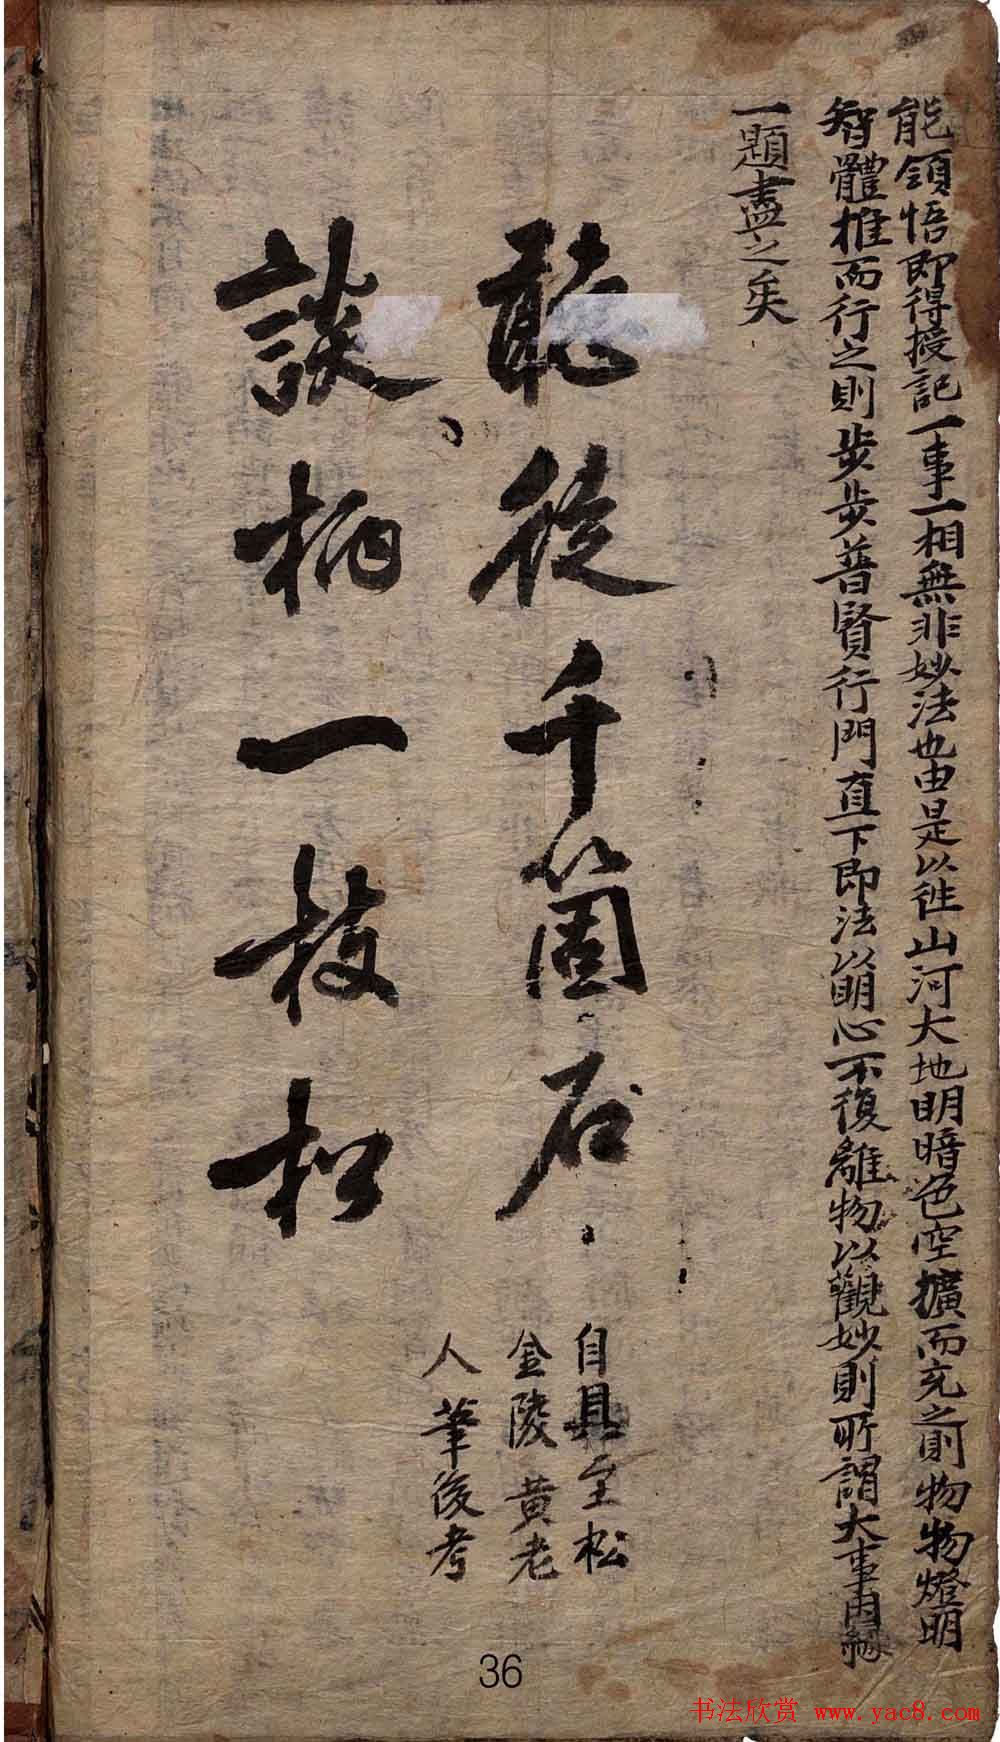 能領悟即得授記一事一相無非妙法也由是以徃山河大地明暗色空擴而充之則物物燈明
智體推而行之則步步普賢行門直下即法以明心不復離物以觀妙則所謂大事因緣
一題盡之矣
聽從千箇石
談柄一枝松
自具至松
金陵黄老
人筆後考
36
书法欣赏 www.yac8.com